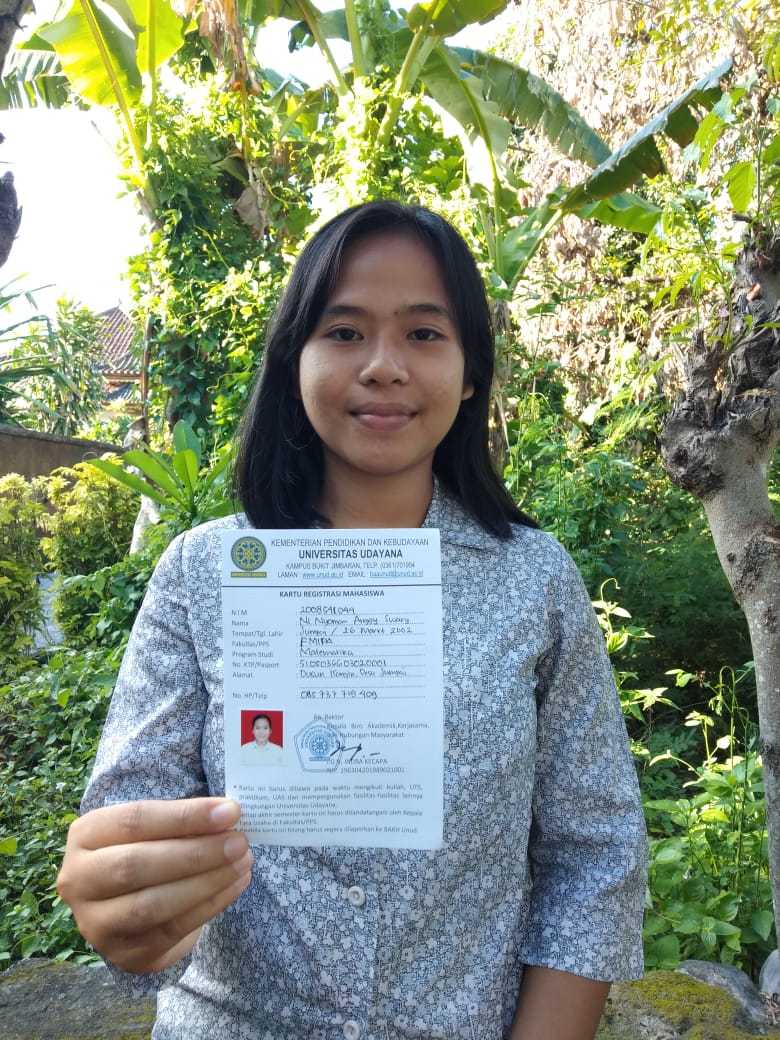 KEMENTERIAN PENDIDIKAN DAN KEBUDAYAAN
UNIVERSITAS UDAYANA
KAMPUS BUKIT JIMBARAN, TELP. (0361)701954
LAMAN : www.unud.ac.id EMAIL :
KARTU REGISTRASI MAHASISWA
NIM 2008541044
Nama Ni Nyoman Anggy Suary
Tempat/Tgl. Lahir / 26 Maret 2002
Fakultas/PPS FMIPA
Program Studi Matematika
No. KTP/Pasport 5105036603020001
Alamat Dusun
No. HP/Telp 085 737 719 409
Kepala Biro Akademik, Kerjasama,
dan Hubungan Masyarakat
NIP.
* Kartu ini harus dibawa pada waktu mengikuti kuliah, UTS,
praktikum, UAS dan mempergunakan fasilitas-fasilitas lainnya
dilingkungan Universitas Udayana.
Setiap akhir semester kartu ini harus ditandatangani oleh Kepala
Tata Usaha di Fakultas/PPS.
kartu ini hilang harus segera dilaporkan ke BAKH Unud.